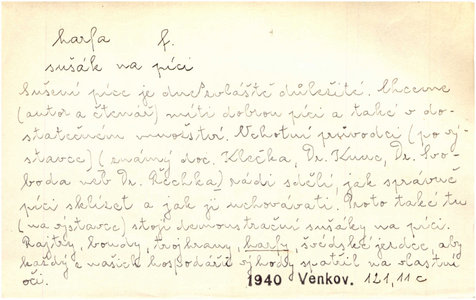 harfa f.
sušák na píci
Sušení píce je dnes zvláště důležité. Chceme
(autor a čtenář) míti dobrou píci a také v do-
statečném množství. Ochotní průvodci (po vý-
stavce) (známý doc. Klečka, Dr. Kunc, Dr. Svo-
boda neb Dr. Řechka) rádi sdělí, jak správně
píci sklízet a jak ji uchovávati. Proto také tu
(na výstavce) stojí demonstrační sušáky na píci.
Rajtry, boudy, trojhrany, harfy, švédské jezdce, aby
každý z našich hospodářů výhody spatřil na vlastní
oči. 1940 Venkov. 121, 11 c